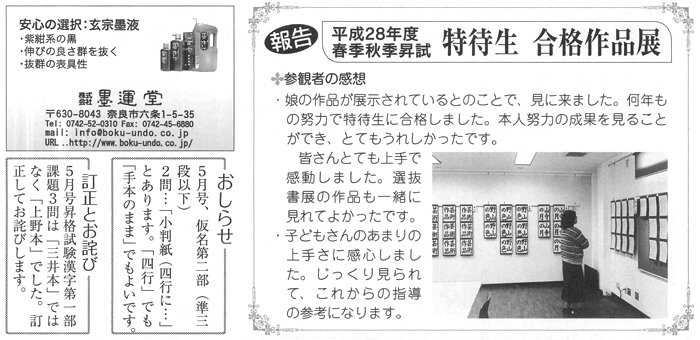 安心の選択：玄宗墨液
・紫紺系の黒
・伸びの良さ群を抜く
・抜群の表具性
株式会社 墨運堂
〒630-8043 奈良市六条1-5-35
Tel: 0742-52-0310 Fax: 0742-45-6880
mail: info@boku-undo.co.jp
URL ..http://www.boku-undo.co.jp/
おしらせ
5月号、仮名第二部（準三
段以下）
2問…「小判紙（四行に…」
とあります。「四行」でも
「手本のまま」でもよいです。
訂正とお詫び
5月号昇格試験漢字第一部
課題3問は「三井本」では
なく「上野本」でした。訂
正してお詫びします。
報告
平成28年度
春季秋季昇試
特待生 合格作品展
参観者の感想
・娘の作品が展示されているとのことで、見に来ました。何年も
の努力で特待生に合格しました。本人努力の成果を見ること
ができ、とてもうれしかったです。
皆さんとても上手で
感動しました。選抜
書展の作品も一緒に
見れてよかったです。
・子どもさんのあまりの
上手さに感心しまし
た。じっくり見られ
て、これからの指導
の参考になります。